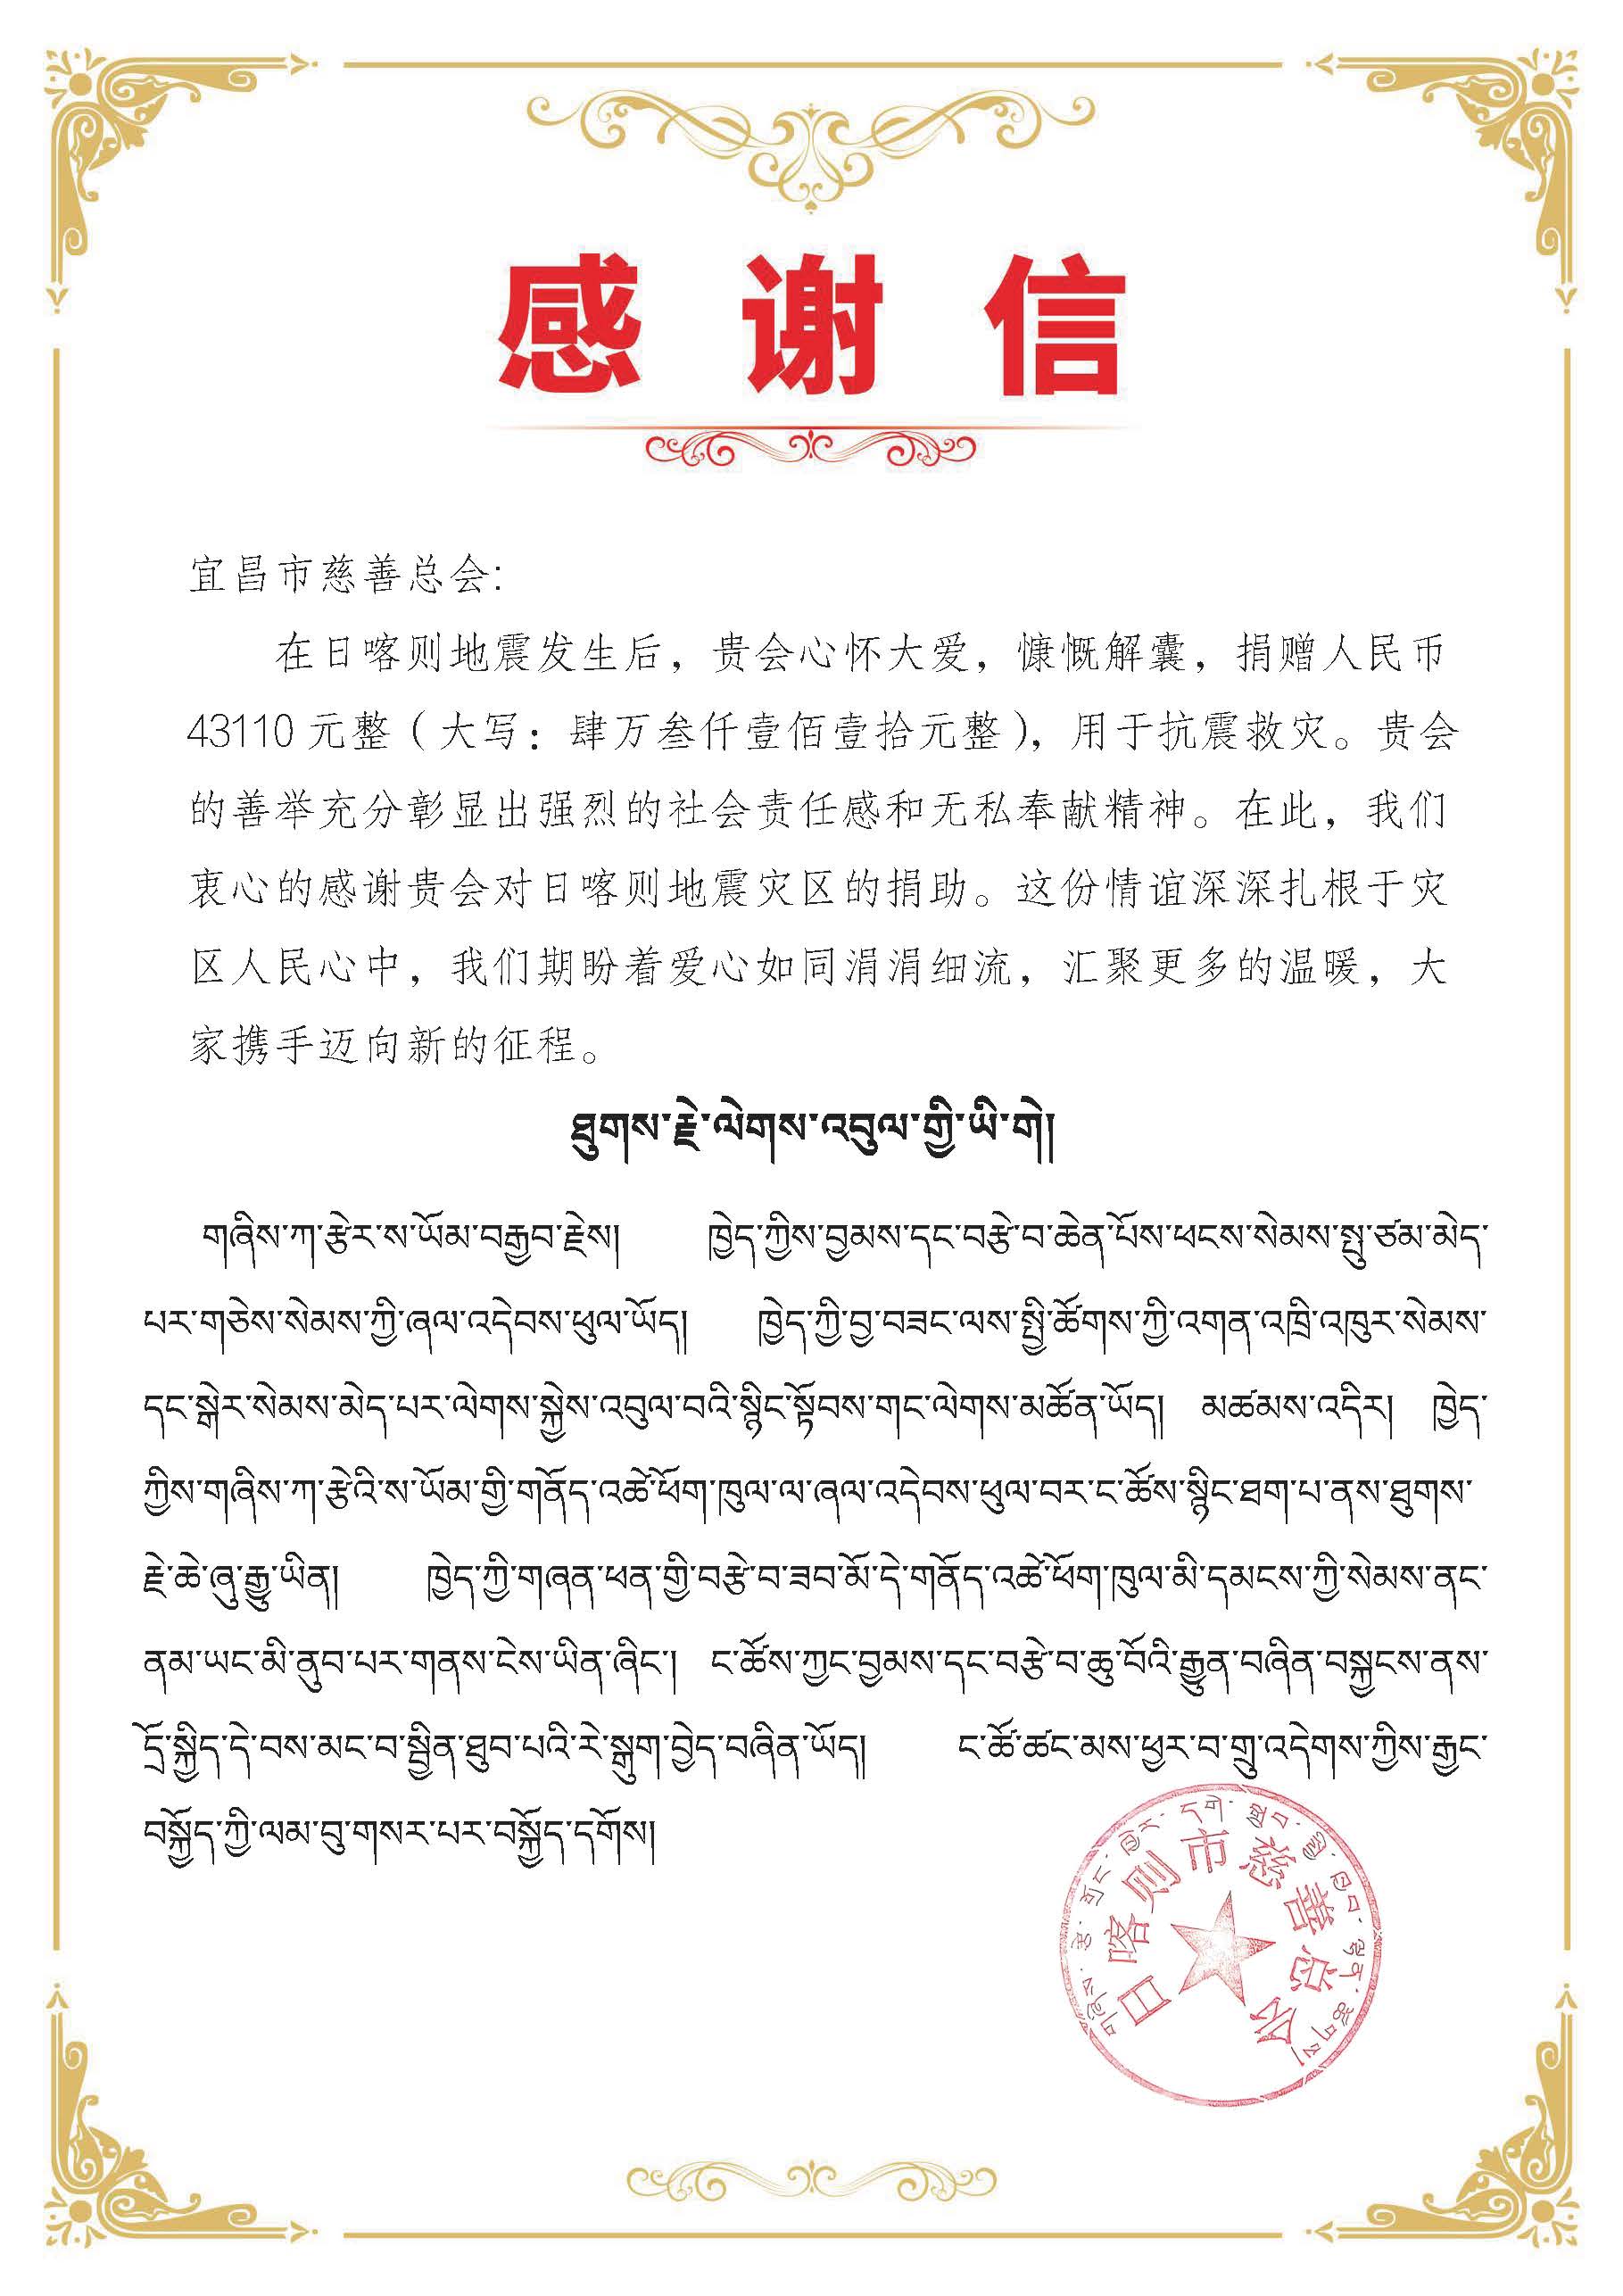 感谢信
宜昌市慈善总会:
在日喀则地震发生后，贵会心怀大爱，慷慨解囊，捐赠人民币
43110元整（大写：肆万叁仟壹佰壹拾元整），用于抗震救灾。贵会
的善举充分彰显出强烈的社会责任感和无私奉献精神。在此，我们
衷心的感谢贵会对日喀则地震灾区的捐助。这份情谊深深扎根于灾
区人民心中，我们期盼着爱心如同涓涓细流，汇聚更多的温暖，大
家携手迈向新的征程。
ཐུགས་རྗེ་ལེགས་འབུལ་གྱི་ཡི་གེ།
གཞིས་ཀ་རྩེར་ས་ཡོམ་བརྒྱབ་རྗེས། ཁྱེད་ཀྱིས་བྱམས་དང་བརྩེ་བ་ཆེན་པོས་ཕངས་སེམས་སྤུ་ཙམ་མེད་
པར་གཅེས་སེམས་ཀྱི་ཞལ་འདེབས་ཕུལ་ཡོད། ཁྱེད་ཀྱི་བྱ་བཟང་ལས་སྤྱི་ཚོགས་ཀྱི་འགན་འཁྲི་འཁུར་སེམས་
དང་སྒེར་སེམས་མེད་པར་ལེགས་སྐྱེས་འབུལ་བའི་སྙིང་སྟོབས་གང་ལེགས་མཚོན་ཡོད། མཚམས་འདིར། ཁྱེད་
ཀྱིས་གཞིས་ཀ་རྩེའི་ས་ཡོམ་གྱི་གནོད་འཚེ་ཕོག་ཁུལ་ལ་ཞལ་འདེབས་ཕུལ་བར་ང་ཚོས་སྙིང་ཐག་པ་ནས་ཐུགས་
རྗེ་ཆེ་ཞུ་རྒྱུ་ཡིན། ཁྱེད་ཀྱི་གཞན་ཕན་གྱི་བརྩེ་བ་ཟབ་མོ་དེ་གནོད་འཚེ་ཕོག་ཁུལ་མི་དམངས་ཀྱི་སེམས་ནང་
ནམ་ཡང་མི་ནུབ་པར་གནས་ངེས་ཡིན་ཞིང་། ང་ཚོས་ཀྱང་བྱམས་དང་བརྩེ་བ་ཆུ་བོའི་རྒྱུན་བཞིན་བསྐྱངས་ནས་
དྲོ་སྐྱིད་དེ་བས་མང་བ་སྦྱིན་ཐུབ་པའི་རེ་སྒུག་བྱེད་བཞིན་ཡོད། ང་ཚོ་ཚང་མས་ཕྱར་བ་གྲུ་འདེགས་ཀྱིས་རྒྱང་
བསྐྱོད་ཀྱི་ལམ་བུ་གསར་པར་བསྐྱོད་དགོས།
日喀则市慈善总会